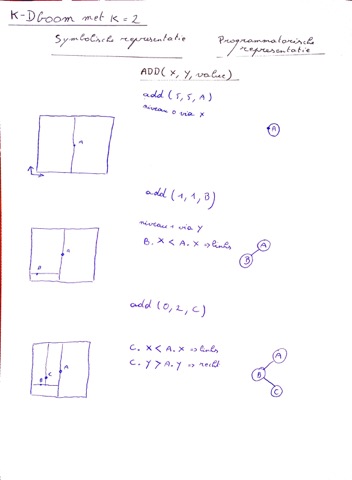 K-DBoom met K = 2
Symbolische representatie
Programmatorische representatie
ADD(X, Y, value)
add(5, 5, A)
niveau 0 via X
A
A
add(1, 1, B)
niveau 1 via Y
B.X < A.X => links
A
B
A
B
add(0, 2, C)
C.X < A.X => links
C.Y > A.Y => recht
A
B
C
A
B
C